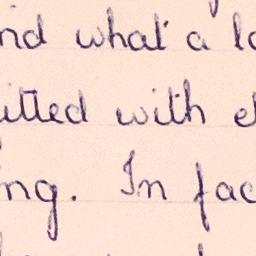 nd what a lo
itted with e
ng. In fac